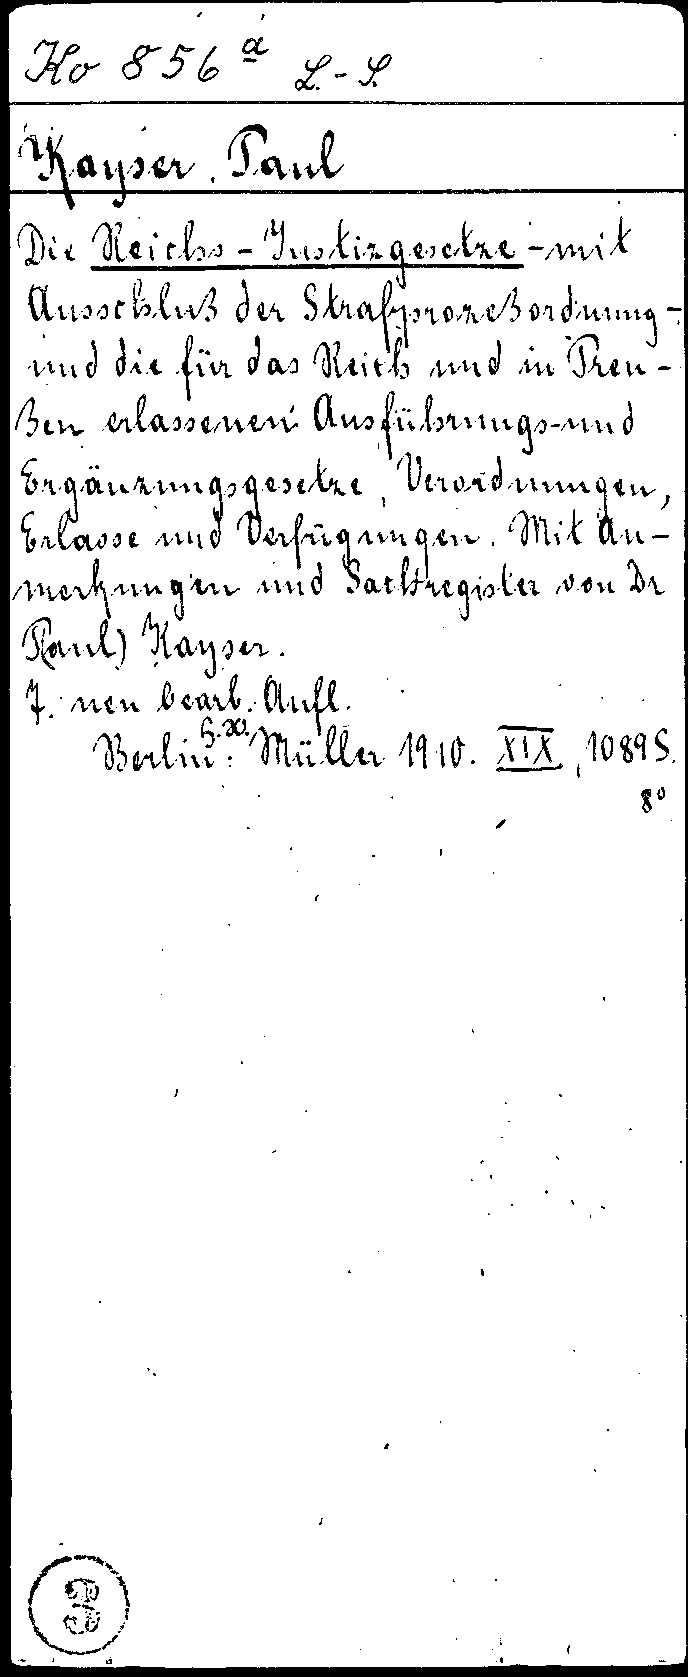 Ko 856 a L.-S.
Kayser, Paul
Die Reichs-Justizgesetze - mit
Ausschluß der Strafprozeßordnung -
und die für das Reich und in Preu-
ßen erlassenen Ausführungs- und
Ergänzungsgesetze, Verordnungen,
Erlasse und Verfügungen. Mit An-
merkungen und Sachregister von Dr
P(aul) Kayser.
7. neu bearb. Aufl.
Berlin: Müller 1910. XIX, 1089 S.
8°
3